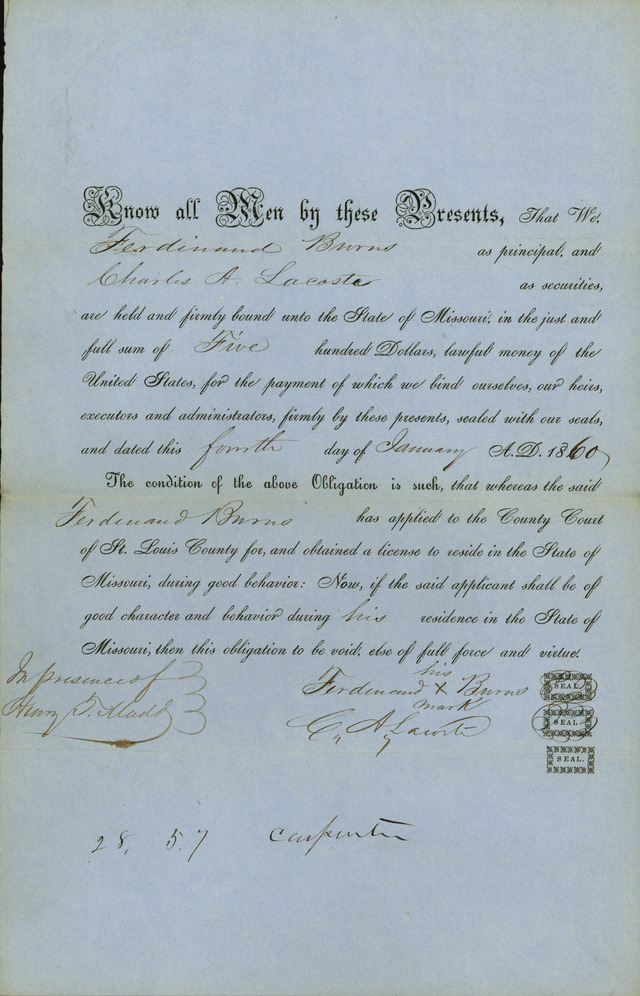 Know all Men by these Presents, That We,
Ferdinand Burns as principal, and
Charles A. Lacoste as securities,
are held and firmly bound unto the State of Missouri, in the just and
full sum of Five hundred Dollars, lawful money of the
United States, for the payment of which we bind ourselves, our heirs,
executors and administrators, firmly by these presents, sealed with our seals,
and dated this fourth day of January A.D. 1860,
The condition of the above Obligation is such, that whereas the said
Ferdinand Burns has applied to the County Court
of St. Louis County for, and obtained a license to reside in the State of
Missouri, during good behavior: Now, if the said applicant shall be of
good character and behavior during his residence in the State of
Missouri, then this obligation to be void, else of full force and virtue.
In presence of
Henry
his
Ferdinand X Burns SEAL.
mark
C, A, Lacoste SEAL.
SEAL.
28, 5.7 carpenter